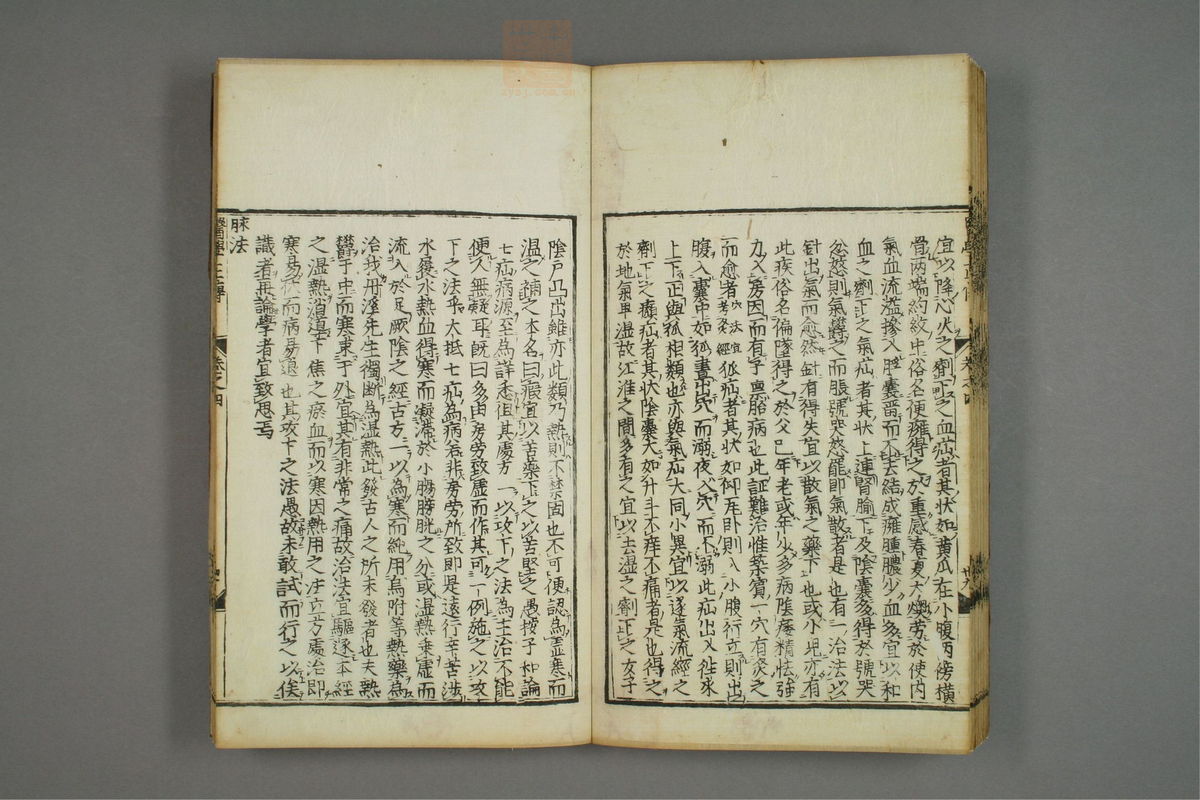 宜以降心火之劑下之血疝者其狀如黃瓜在小腹兩傍橫
骨兩端約紋中俗名便癰得之於重感春夏大燠勞於使內
氣血流溢滲入脬囊留而不去結成癰腫膿少血多宜以和
血之劑下之氣疝者其狀上連腎腧下及陰囊多得於號哭
忿怒則氣鬱之而脹號哭怒罷即氣散者是也有一治法以
針出氣而愈然針有得失宜以散氣之藥下也或小児亦有
此疾俗名偏墜得之於父已年老或年少多病陰痿精怯強
力入房因而有子禀胎病也此証難治惟築賓一穴有灸之
而愈者
穴法宜考灸經
狐疝者其狀如仰瓦卧則入小腹行立則出
腹入囊中如狐晝出穴而溺夜入穴而不溺此疝出入徃來
上下正與狐相類也亦與氣疝大同小異宜以逐氣流經之
劑下之癩疝者其狀陰囊大如升斗不痒不痛者是也得之
於地氣卑濕故江淮之間多有之宜以去濕之劑下之女子
陰戶凸出雖亦此類乃熱則不禁固也不可便認為虛寒而
温之補之本名曰瘕宜以苦藥下之以苦堅之愚按子和論
七疝病源至為詳悉但其處方一以攻下之法為主治不能
使人無疑耳既曰多由房勞致虛而作其可一例施之以攻
下之法乎大抵七疝為病若非房勞所致即是遠行辛苦涉
水發水熱血得寒而凝滯於小腸膀胱之分或濕熱乗虛而
流入於足厥陰之經古方一以為寒而純用烏附等熱藥為
治我丹溪先生獨斷為濕熱此發古人之所未發者也夫熱
鬱于中而寒束于外宜其有非常之痛故治法宜驅逐本經
之濕熱消導下焦之瘀血而以寒因熱用之法立方處治即
寒易伏而病易退也其攻下之法愚故未敢試而行之以俟
識者再論學者宜致思焉
脉法
醫學正傳 卷之四